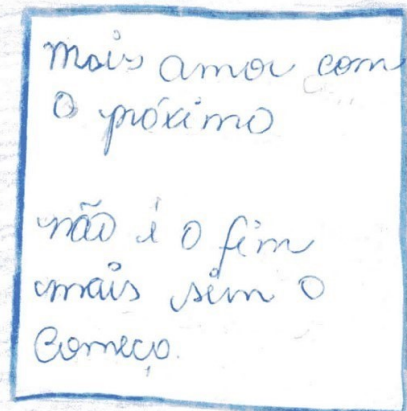 mais amor com
o próximo
não é o fim
mais sim o
começo.